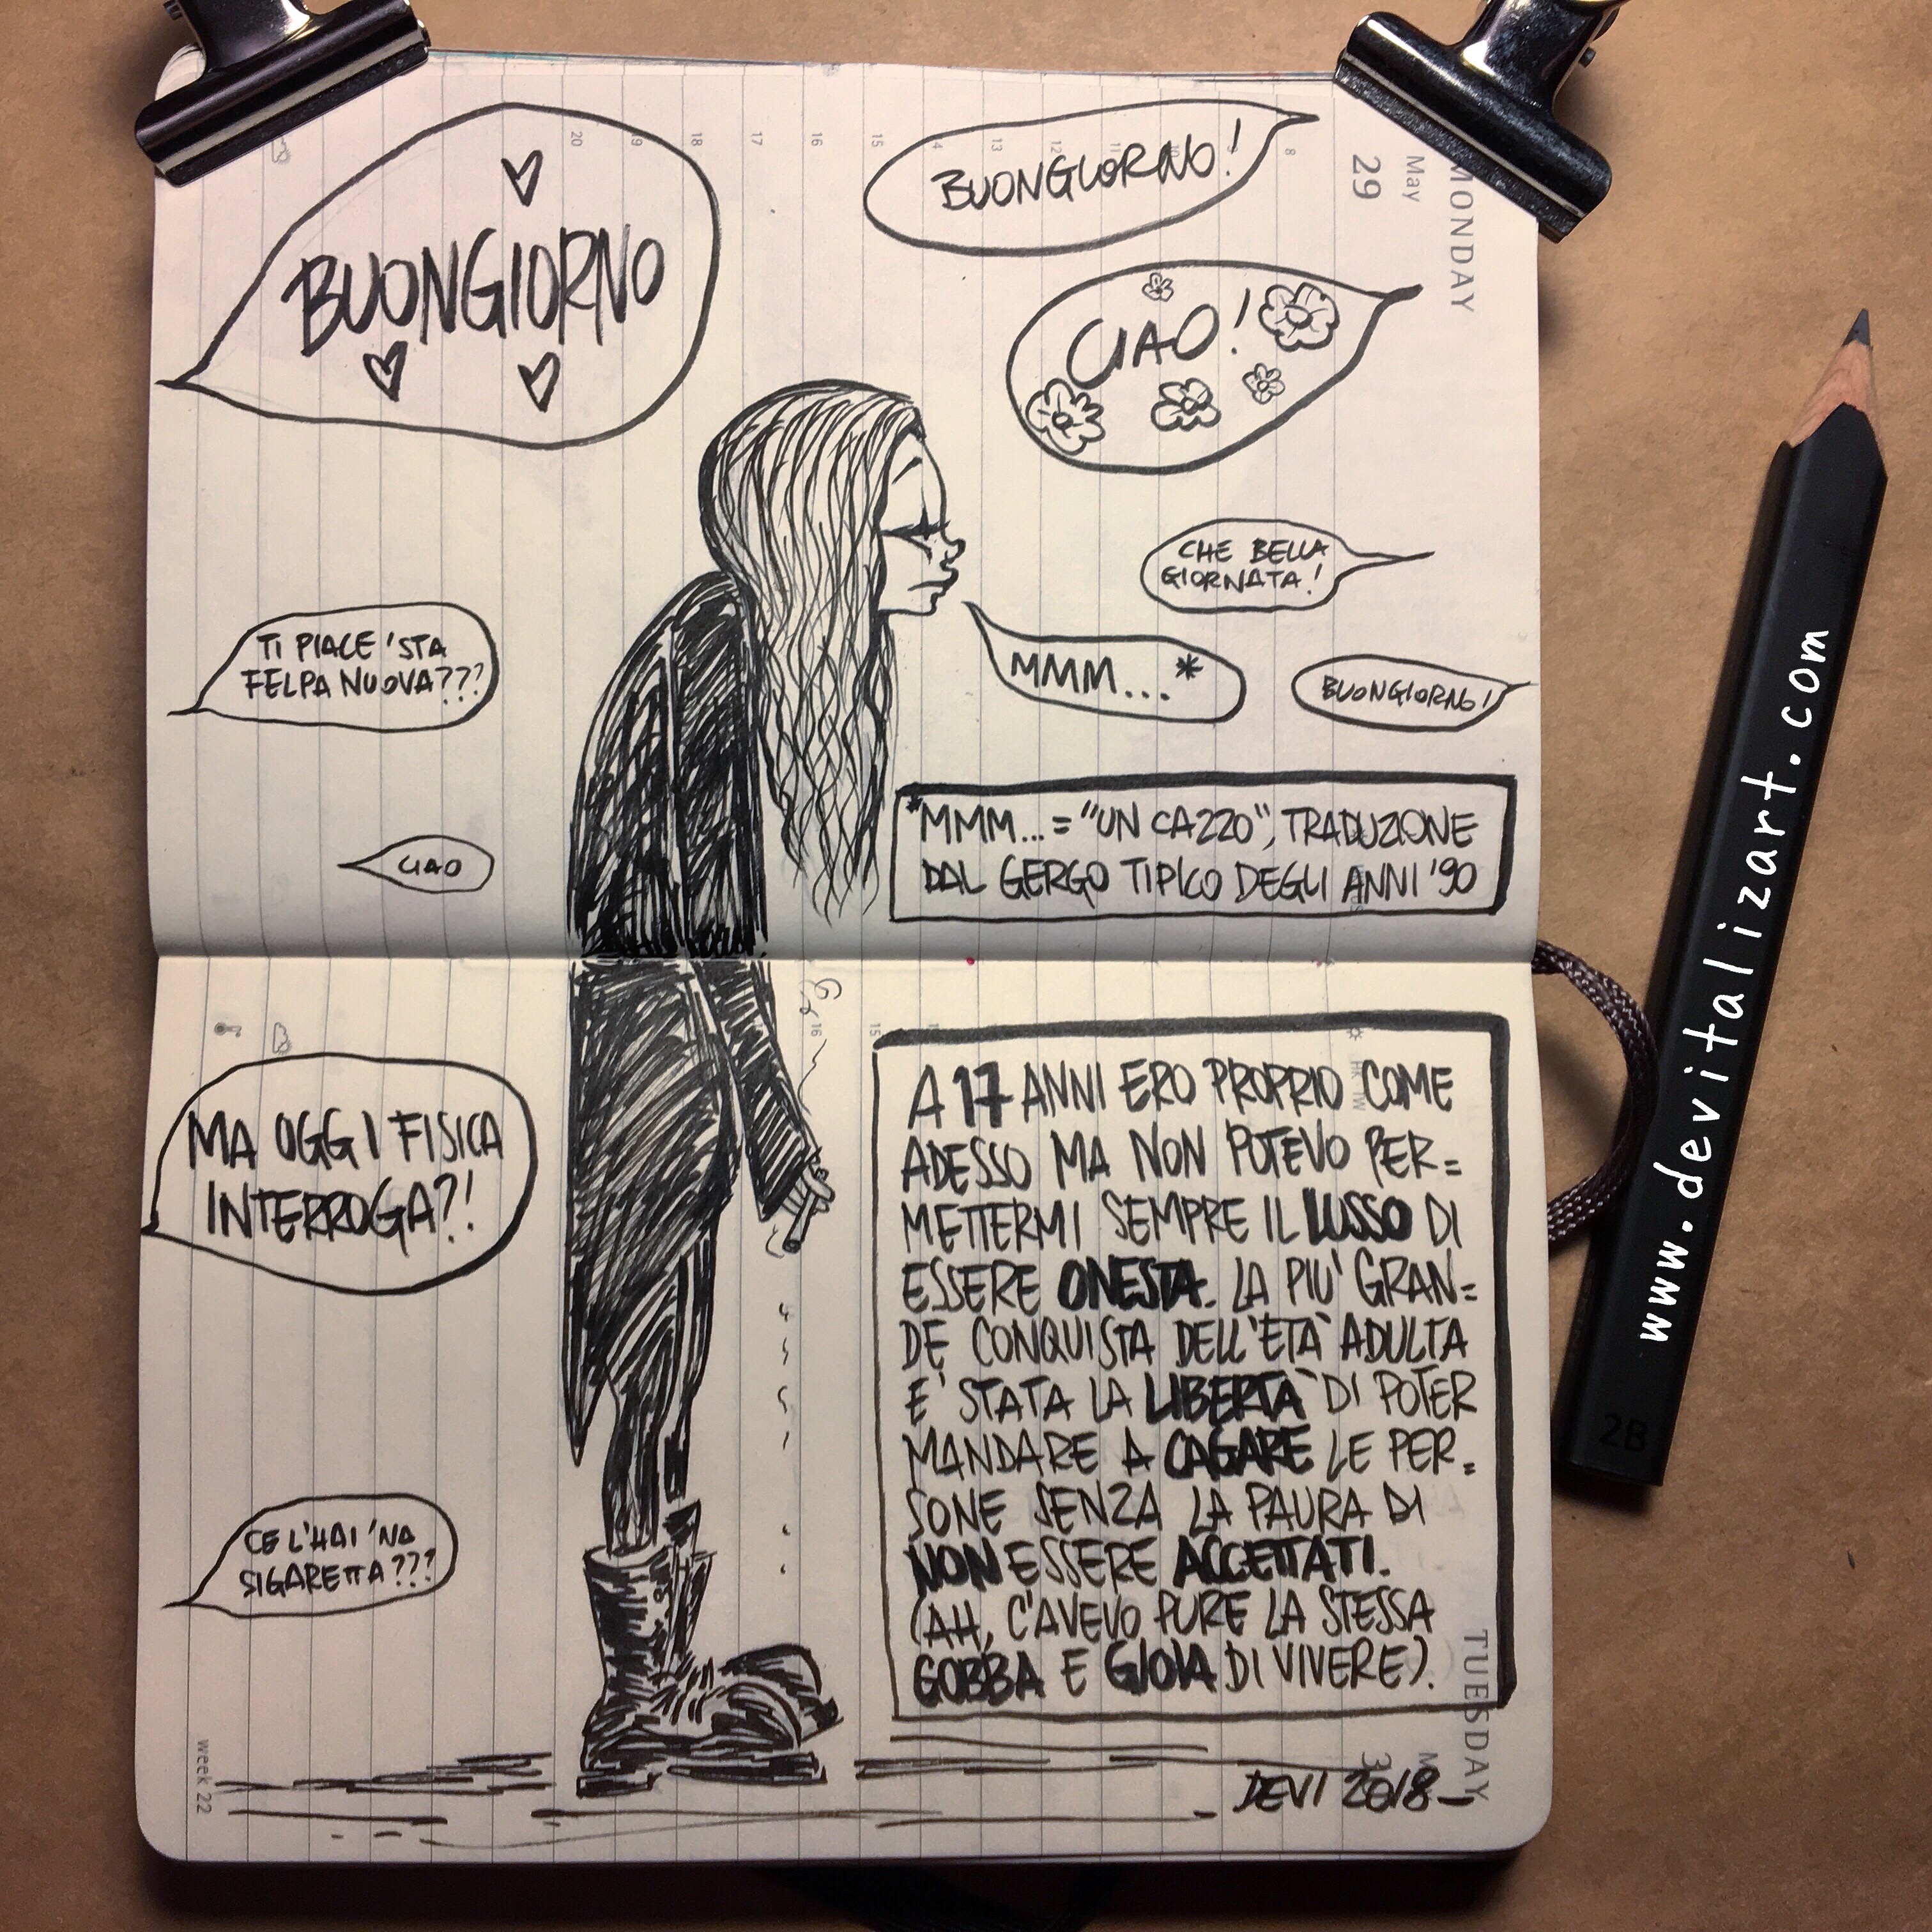 BUONGIORNO
BUONGIORNO!
CIAO!
CHE BELLA
GIORNATA!
TI PIACE 'STA
FELPA NUOVA???
MMM...*
BUONGIORNO!
*MMM...= "UN CAZZO", TRADUZIONE
DAL GERGO TIPICO DEGLI ANNI '90
CIAO
MA OGGI FISICA
INTERROGA?!
CE L'HAI 'NA
SIGARETTA???
A 17 ANNI ERO PROPRIO COME
ADESSO MA NON POTEVO PER=
METTERMI SEMPRE IL LUSSO DI
ESSERE ONESTA. LA PIU' GRAN=
DE CONQUISTA DELL'ETA' ADULTA
E' STATA LA LIBERTA' DI POTER
MANDARE A CAGARE LE PER=
SONE SENZA LA PAURA DI
NON ESSERE ACCETTATI.
(AH, C'AVEVO PURE LA STESSA
GOBBA E GIOIA DI VIVERE).
DEVI 2018
MONDAY
May
29
8
12
13
14
15
16
17
18
19
20
TUESDAY
15
16
week 22
www.devitalizart.com
2B